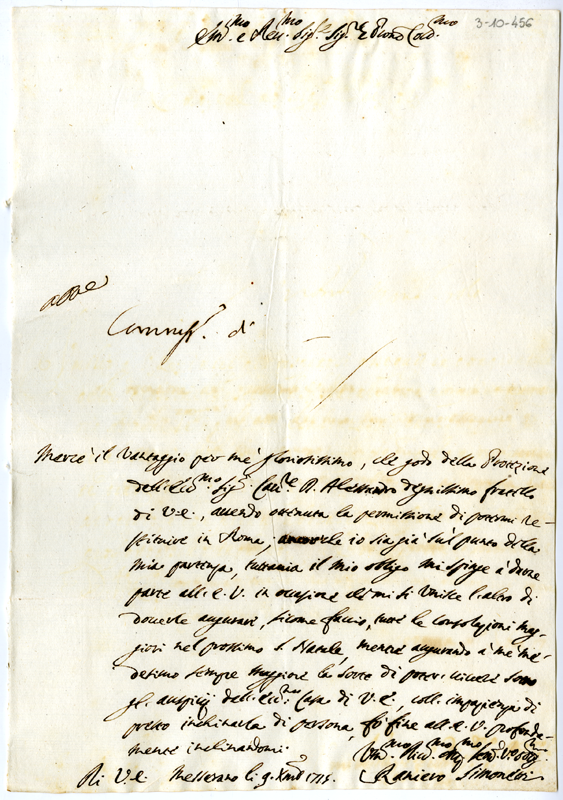 3-10-456
Em.mo e Rev.mo Sig.r Sig.r e P.rone Col.mo
Commiss. di
Mercè il vantaggio per me gloriosissimo, che godo della Protezione
dell'Ecc.mo Sig.r D. Alessandro degnissimo fratello
di V. E., avendo ottenuta la permissione di potermi re-
stituire in Roma, io sia già sul punto della
mia partenza, tuttavia il mio obligo mi spinge à darne
parte all'E. V. in occasione che mi si unisce l'altro di
doverle augurare, sicome faccio, tutte le consolazioni mag-
giori nel prossimo S. Natale, mentre augurando à me me-
desimo sempre maggiore la sorte di poter vivere sotto
gl'auspicij dell'Ecc.ma Casa di V. E., coll'impazienza di
presto inchinarla di persona, fò fine all'E. V. profonda-
mente inchinandomi.
Di V. E. Messerano li 9 Xmbre 1715.
Raniero Simonetti